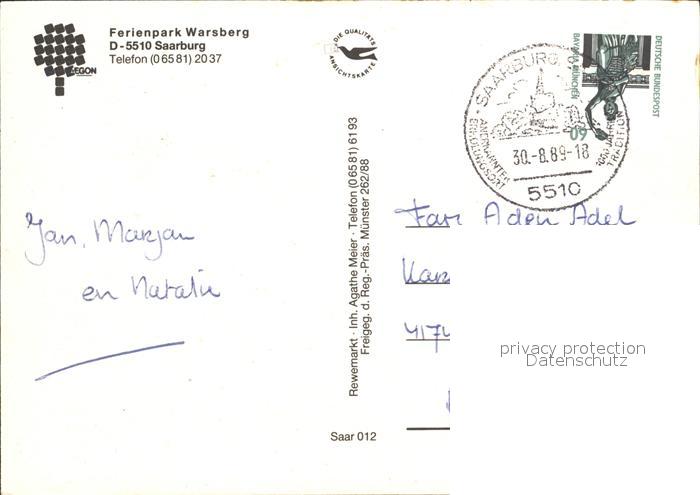 Ferienpark Warsberg
D-5510 Saarburg
Telefon (06581) 2037
AEGON
DIE QUALITÄTS
ANSICHTSKARTE
DEUTSCHE BUNDESPOST
BAVARIA MÜNCHEN
60
SAARBURG
ANERKANNTER
ERHOLUNGSORT
1000 JAHRE
TRADITION
30.-8.89-18
5510
Jan, Marjan
en Natalie
Rewemarkt · Inh. Agathe Meier · Telefon (06581) 6193
Freigeg. d. Reg.-Präs. Münster 262/88
Fam Adel
4174
privacy protection
Datenschutz
Saar 012